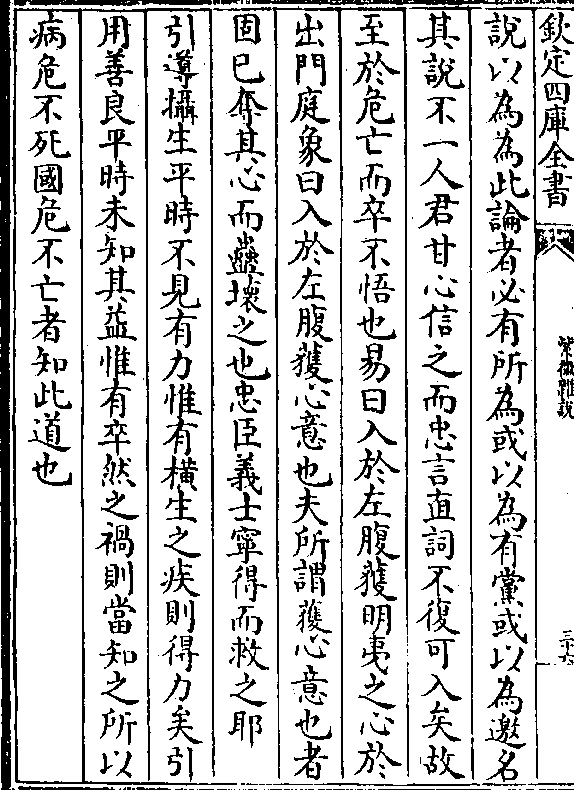 欽定四庫全書
紫微雜說
三十六
說以為為此論者必有所為或以為有黨或以為邀名
其說不一人君甘心信之而忠言直詞不復可入矣故
至於危亡而卒不悟也易曰入於左腹獲明夷之心於
出門庭象曰入於左腹獲心意也夫所謂獲心意也者
固已奪其心而蠱壞之也忠臣義士寧得而救之耶
引導攝生平時不見有力惟有橫生之疾則得力矣引
用善良平時未知其益惟有卒然之禍則當知之所以
病危不死國危不亡者知此道也